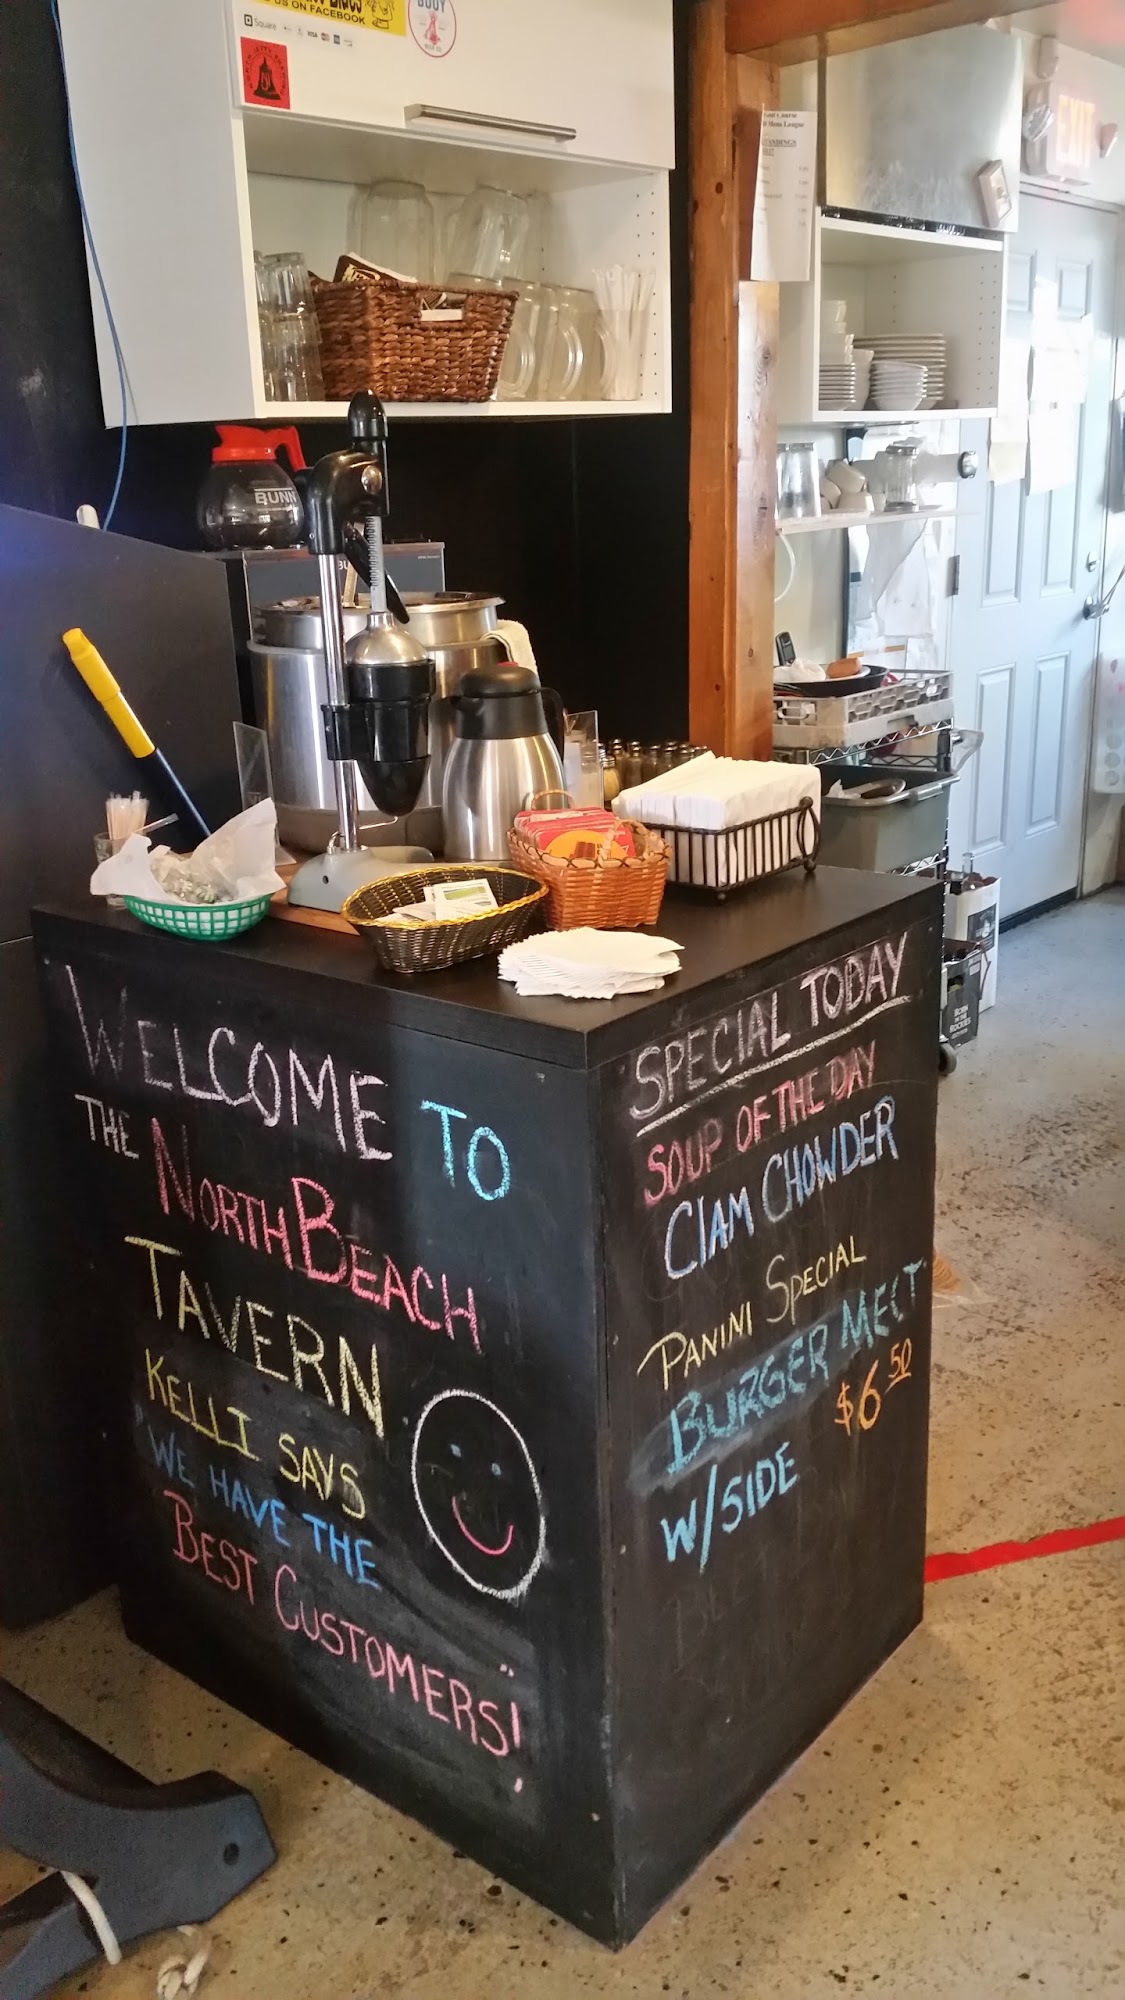 US ON FACEBOOK
Square
VISA
BUOY
BEER CO.
STANDINGS
EXIT
BUNN
WELCOME TO
THE NORTH BEACH
TAVERN
KELLI SAYS
WE HAVE THE
BEST CUSTOMERS!
SPECIAL TODAY
SOUP OF THE DAY
ClAM CHOWDER
PANINI SPECIAL
BURGER MELT
$6.50
W/SIDE